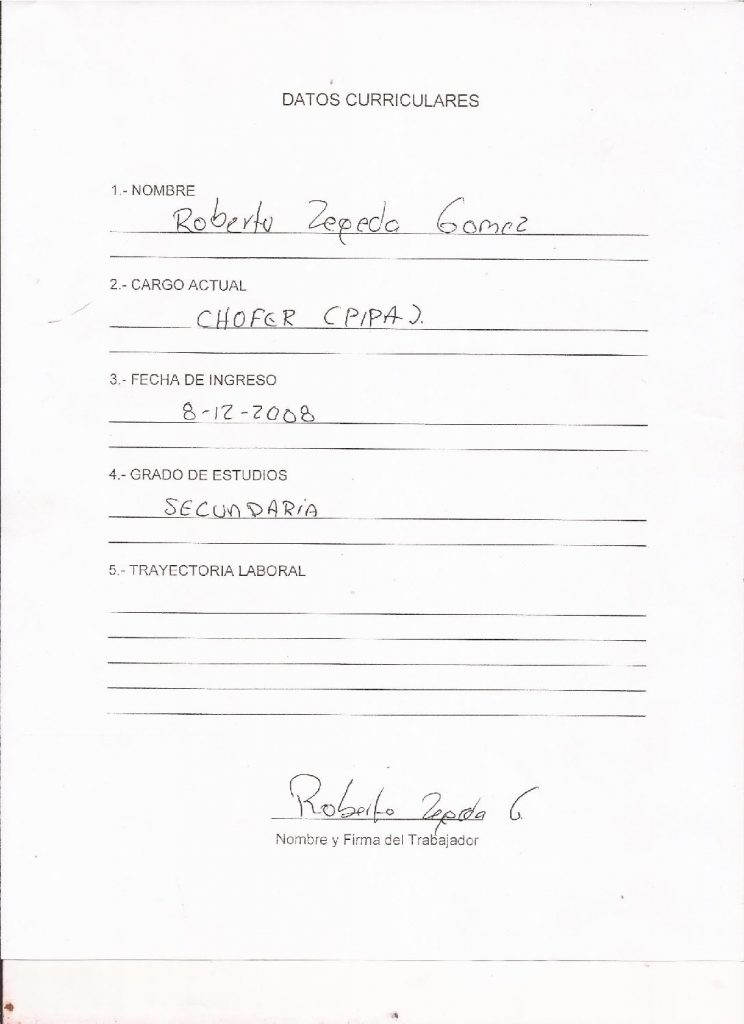 DATOS CURRICULARES
1.- NOMBRE
Roberto Zepeda Gomez
2.- CARGO ACTUAL
CHOFER (PIPA).
3.- FECHA DE INGRESO
8-12-2008
4.- GRADO DE ESTUDIOS
SECUNDARIA
5.- TRAYECTORIA LABORAL
Roberto Zepeda G.
Nombre y Firma del Trabajador